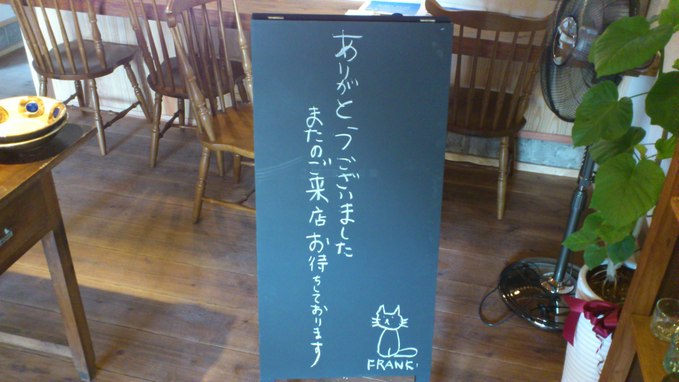 ありがとうございました
またのご来店お待ちしております
FRANK